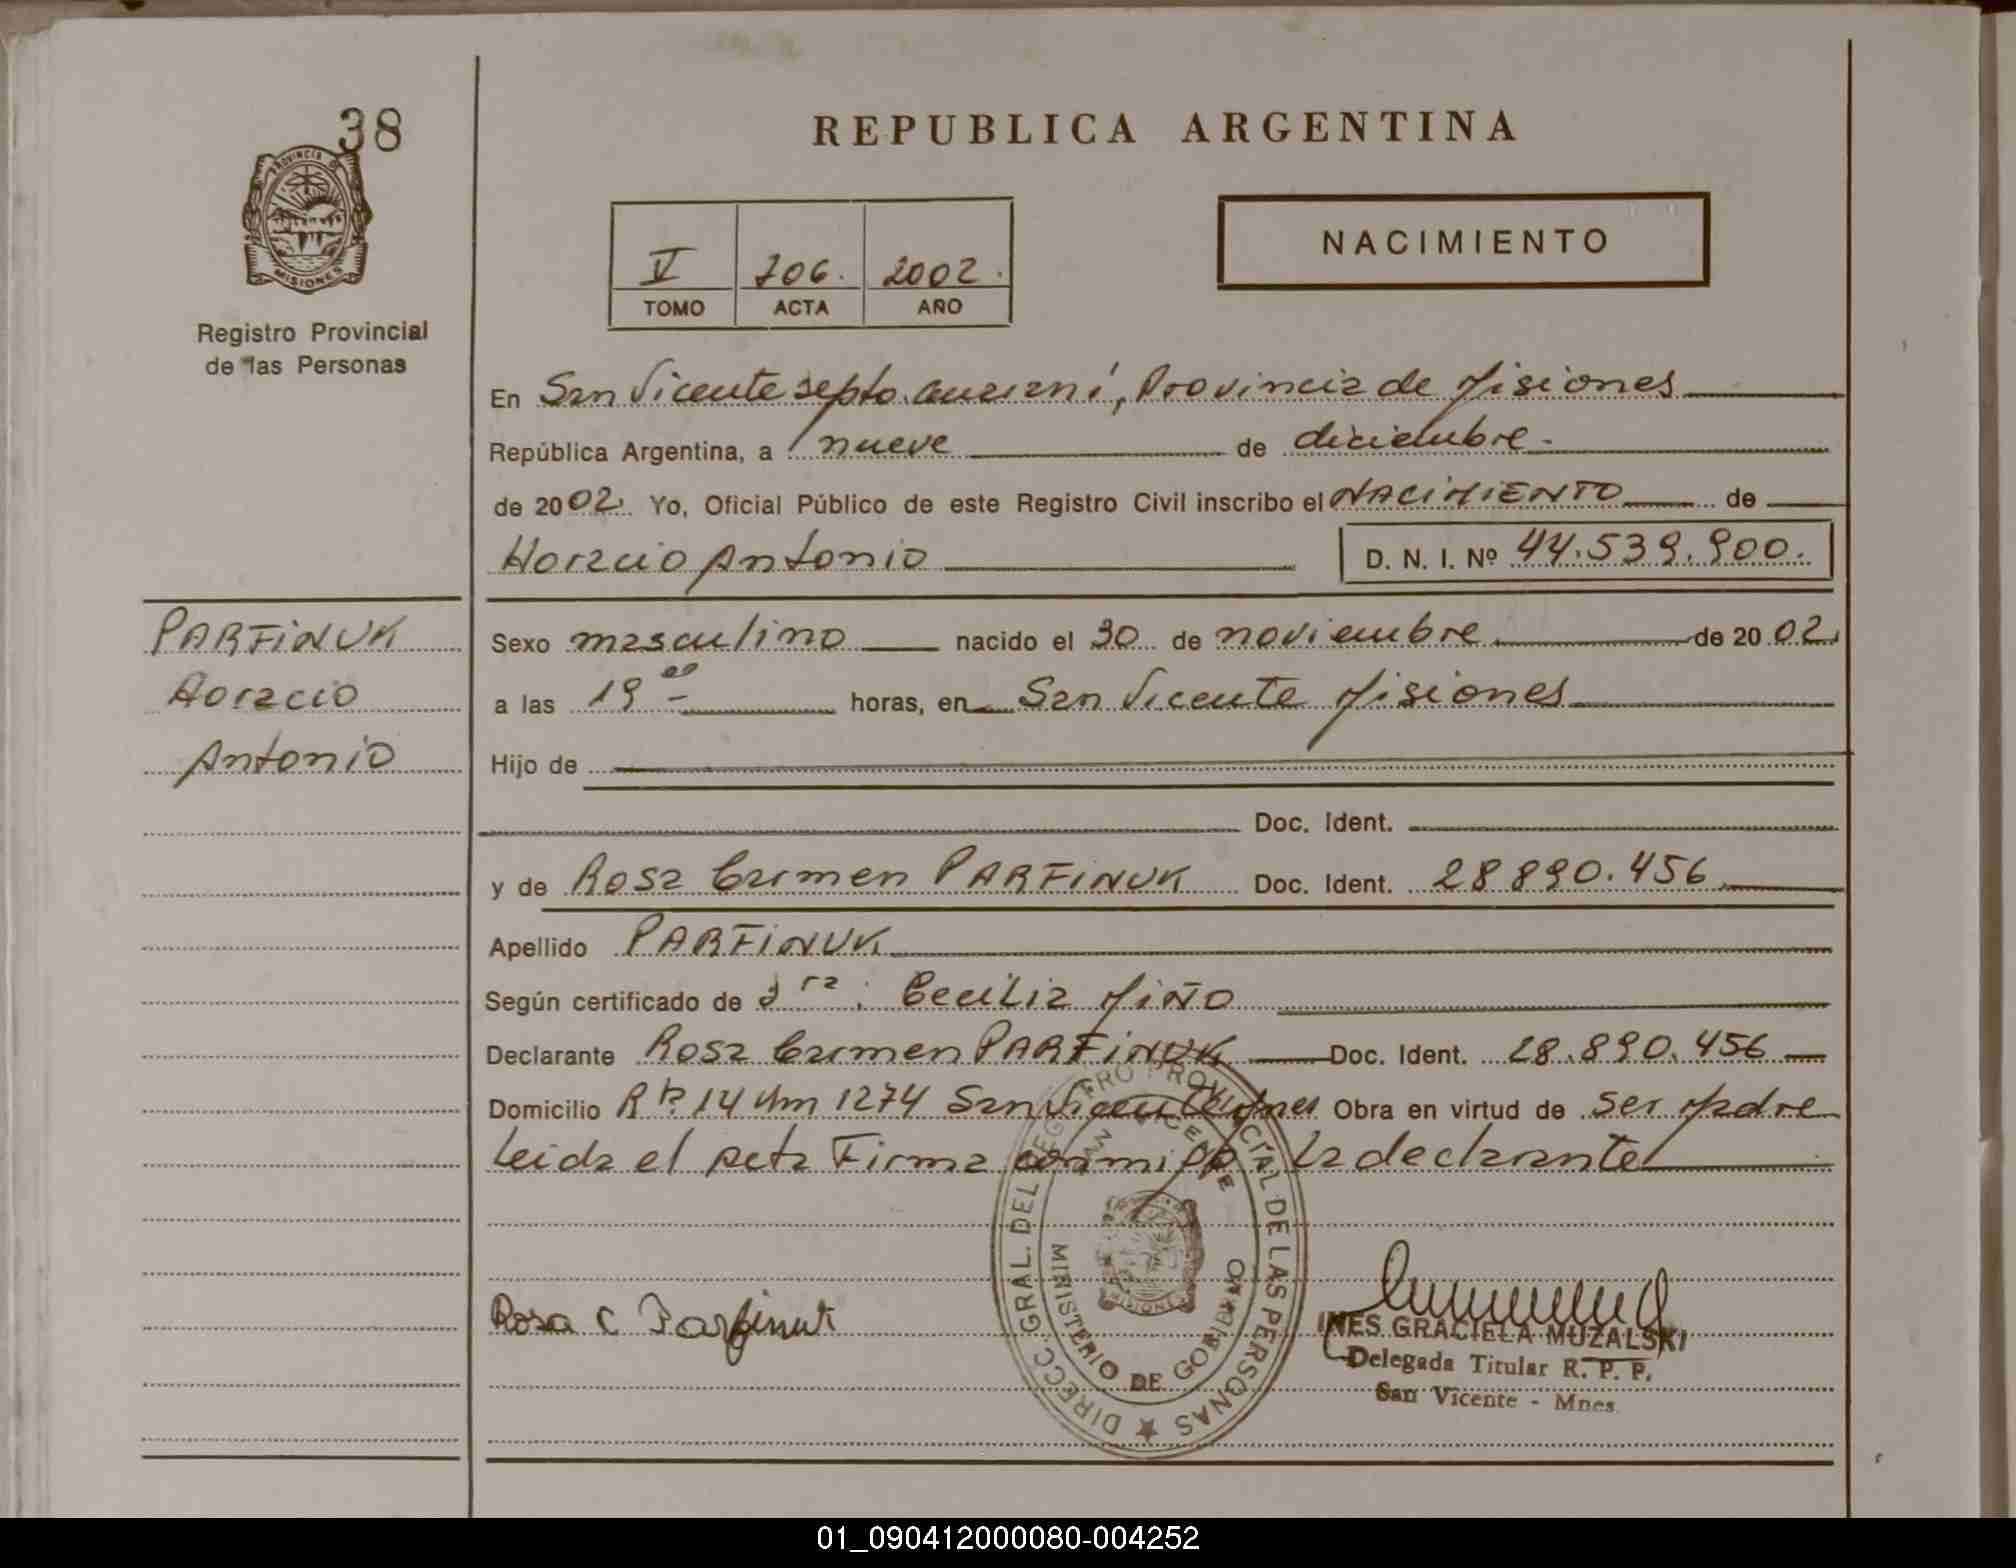 38
PROVINCIA DE
MISIONES
Registro Provincial
de las Personas
REPUBLICA ARGENTINA
V 706. 2002.
TOMO ACTA AÑO
NACIMIENTO
En San Vicente Depto Guaraní, Provincia de Misiones
República Argentina, a nueve de diciembre.
de 2002. Yo, Oficial Público de este Registro Civil inscribo el NACIMIENTO de
Horacio Antonio D. N. I. Nº 44.539.900.
PARFINUK
Horacio
Antonio
Sexo masculino nacido el 30 de noviembre de 2002.
a las 19 horas, en San Vicente Misiones
Hijo de
Doc. Ident.
y de Rosa Carmen PARFINUK Doc. Ident. 28890.456
Apellido PARFINUK
Según certificado de Dra. Cecilia Miño
Declarante Rosa Carmen PARFINUK Doc. Ident. 28.890.456
Domicilio Rta. 14 Km 1274 San Vicente Mnes Obra en virtud de ser Madre
Leida el acta Firma conmigo La declarante
DIRECC. GRAL. DEL REGISTRO PROVINCIAL DE LAS PERSONAS
SAN VICENTE
MISIONES
MINISTERIO DE GOBIERNO
Rosa C Parfinuk
INES GRACIELA MUZALSKI
Delegada Titular R. P. P.
San Vicente - Mnes.
01_090412000080-004252